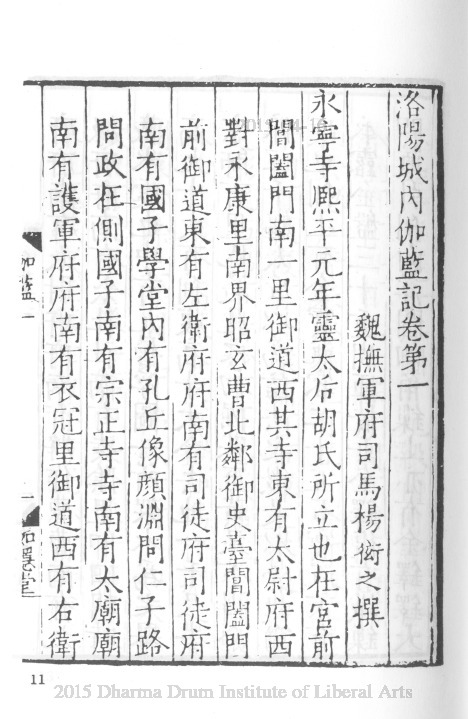 洛陽城內伽藍記卷第一
魏撫軍府司馬楊衒之撰
永寧寺熈平元年靈太后胡氏所立也在宮前
閶闔門南一里御道西其寺東有太尉府西
對永康里南界昭玄曹北鄰御史臺閶闔門
前御道東有左衛府府南有司徒府司徒府
南有國子學堂內有孔丘像顏淵問仁子路
問政在側國子南有宗正寺寺南有太廟廟
南有護軍府府南有衣冠里御道西有右衛
伽藍一
一
如隱堂
11
2015 Dharma Drum Institute of Liberal Arts